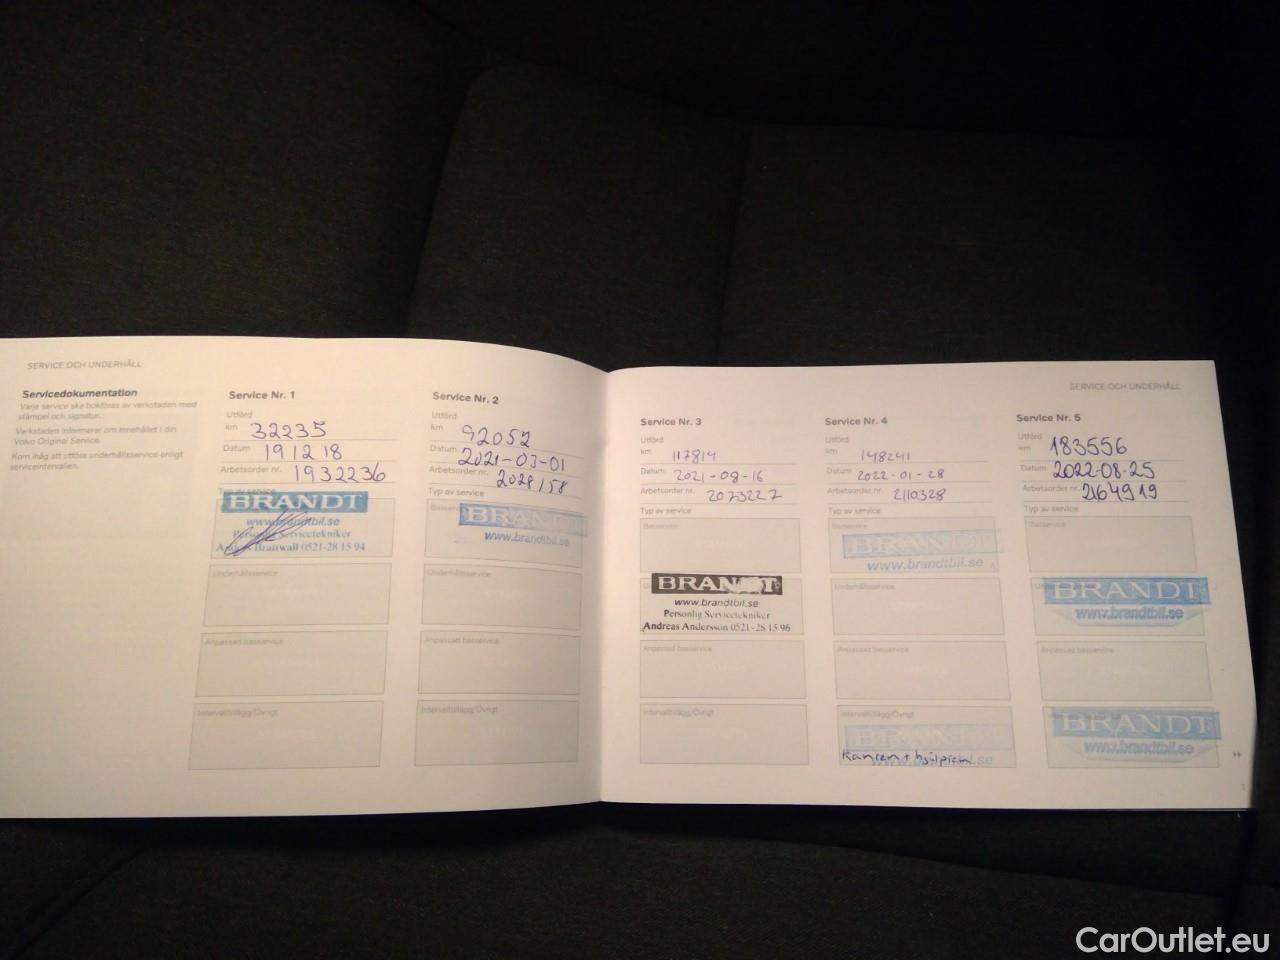 SERVICE OCH UNDERHÅLL
Servicedokumentation
Varje service ska bokföras av verkstaden med
stämpel och signatur.
Verkstaden informerar om innehållet i din
Volvo Original Service.
Kom ihåg att utföra underhållsservice enligt
serviceintervallen.
Service Nr. 1
Utförd
km 32235
Datum 191218
Arbetsorder nr. 1932236
Typ av service
BRANDT
www.brandtbil.se
Personlig Servicetekniker
Brattwall 0521-28 15 94
Underhållsservice
Anpassad basservice
Intervalltillägg/Övrigt
Service Nr. 2
Utförd
km 92052
Datum 2021-03-01
Arbetsorder nr. 2028158
Typ av service
BRANDT
www.brandtbil.se
Underhållsservice
Anpassad basservice
Intervalltillägg/Övrigt
SERVICE OCH UNDERHÅLL
Service Nr. 3
Utförd
km 117814
Datum 2021-08-16
Arbetsorder nr. 2073227
Typ av service
Basservice
BRANDT
www.brandtbil.se
Personlig Servicetekniker
Andreas Andersson 0521-28 15 96
Anpassad basservice
Intervalltillägg/Övrigt
Service Nr. 4
Utförd
km 148241
Datum 2022-01-28
Arbetsorder nr. 2110328
Typ av service
Basservice
BRANDT
www.brandtbil.se
Anpassad basservice
Intervalltillägg/Övrigt
BRANDT
Service Nr. 5
Utförd
km 183556
Datum 2022-08-25
Arbetsorder nr. 2164919
Typ av service
Basservice
BRANDT
www.brandtbil.se
Anpassad basservice
BRANDT
www.brandtbil.se
››
CarOutlet.eu